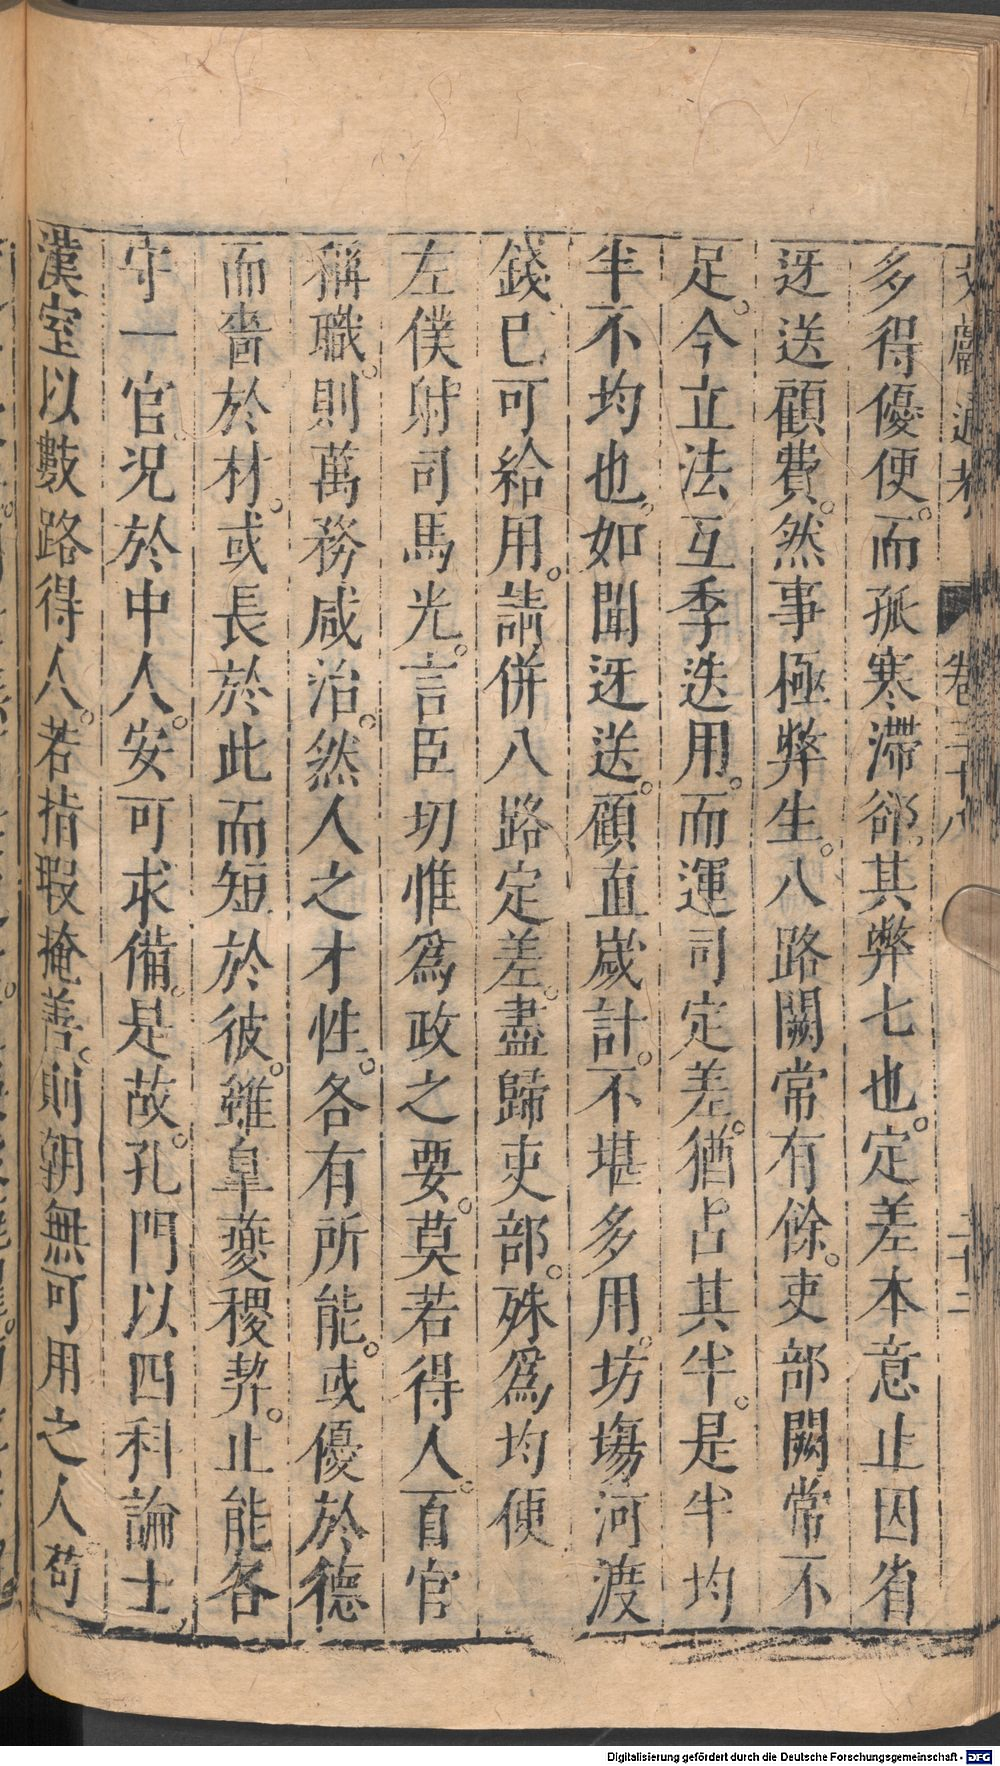 文獻通考 卷三十八 二十二
多得優便。而孤寒滯郤。其弊七也。定差本意止因省
迓送顧費。然事極弊生。八路闕常有餘。吏部闕常不
足。今立法互季迭用。而運司定差。猶占其半。是半均
半不均也。如聞迓送。顧直歲計。不堪多用。坊塲河渡
錢已可給用。請併八路定差。盡歸吏部。殊爲均便
左僕射司馬光。言臣切惟爲政之要。莫若得人。百官
稱職。則萬務咸治。然人之才性。各有所能。或優於德
而嗇於材。或長於此而短於彼。雖皐夔稷契。止能各
守一官。況於中人。安可求備。是故。孔門以四科論士
漢室以數路得人。若指瑕掩善。則朝無可用之人。苟
Digitalisierung gefördert durch die Deutsche Forschungsgemeinschaft - DFG